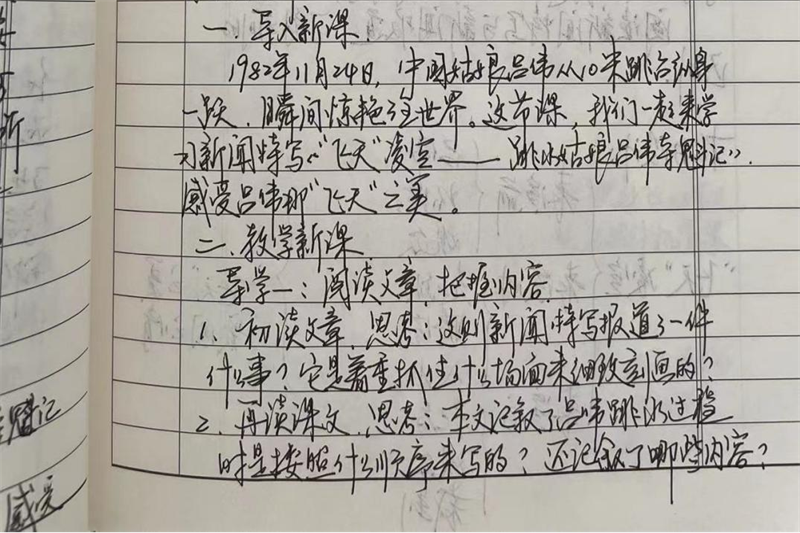 一、导入新课
1982年11月24日，中国姑娘吕伟从10米跳台纵身
一跃，瞬间惊艳全世界。这节课，我们一起来学
习新闻特写《"飞天"凌空——跳水姑娘吕伟夺魁记》，
感受吕伟那"飞天"之美。
二、教学新课
导学一：阅读文章，把握内容
1、初读文章，思考：这则新闻特写报道了一件
什么事？它是着重抓住什么场面来细致刻画的？
2、再读课文，思考：本文记叙了吕伟跳水过程
时是按照什么顺序来写的？还记叙了哪些内容？
魁记
感受